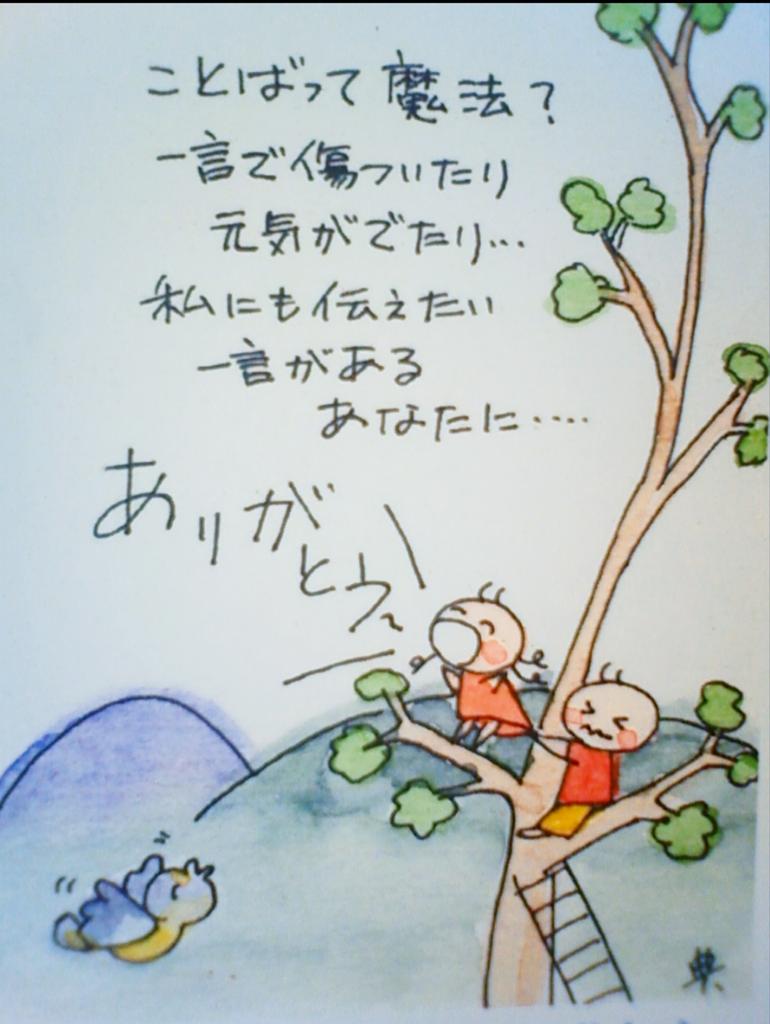 ことばって魔法?
一言で傷ついたり
元気がでたり…
私にも伝えたい
一言がある
あなたに‥‥
ありがとう~
典